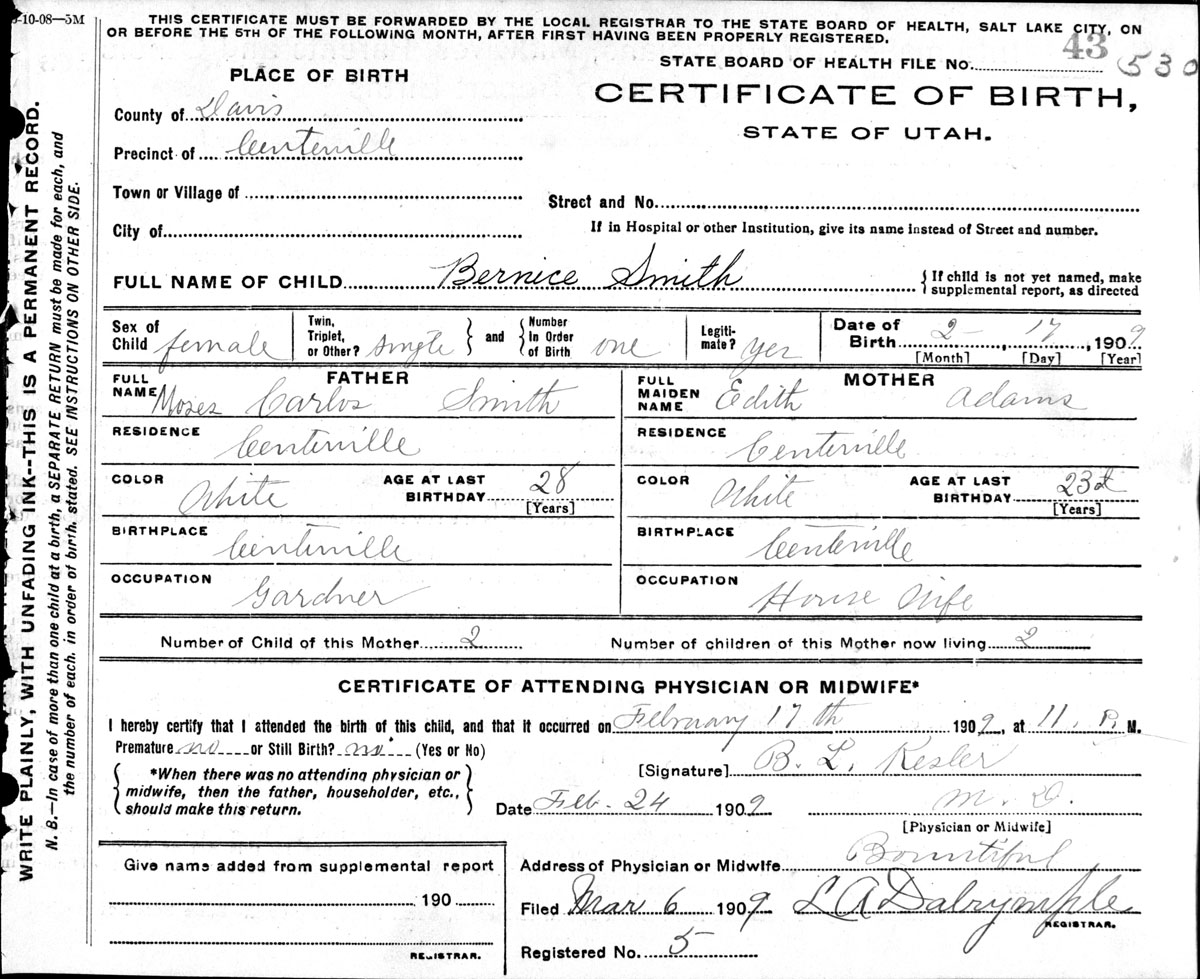 -10-08—3M
THIS CERTIFICATE MUST BE FORWARDED BY THE LOCAL REGISTRAR TO THE STATE BOARD OF HEALTH, SALT LAKE CITY, ON
OR BEFORE THE 5TH OF THE FOLLOWING MONTH, AFTER FIRST HAVING BEEN PROPERLY REGISTERED.
STATE BOARD OF HEALTH FILE NO. 43 530
PLACE OF BIRTH
CERTIFICATE OF BIRTH,
STATE OF UTAH.
County of Davis
Precinct of Centerville
Town or Village of
Street and No.
City of
If in Hospital or other Institution, give its name instead of Street and number.
FULL NAME OF CHILD Bernice Smith
{ If child is not yet named, make
supplemental report, as directed
Sex of Child female
Twin, Triplet, or Other? single } and { Number In Order of Birth one
Legiti-mate? yes
Date of Birth 2 - 17, 1909
[Month] [Day] [Year]
FATHER
FULL NAME Moses Carlos Smith
RESIDENCE Centerville
COLOR White AGE AT LAST BIRTHDAY 28
[Years]
BIRTHPLACE Centerville
OCCUPATION Gardner
MOTHER
FULL MAIDEN NAME Edith Adams
RESIDENCE Centerville
COLOR White AGE AT LAST BIRTHDAY 23
[Years]
BIRTHPLACE Centerville
OCCUPATION House Wife
Number of Child of this Mother 2 Number of children of this Mother now living 2
CERTIFICATE OF ATTENDING PHYSICIAN OR MIDWIFE*
I hereby certify that I attended the birth of this child, and that it occurred on February 17th 1909, at 11. P. M.
Premature no or Still Birth? no (Yes or No)
{ *When there was no attending physician or
midwife, then the father, householder, etc.,
should make this return. }
[Signature] B. L. Kesler
Date Feb. 24 1909 M. D.
[Physician or Midwife]
Give name added from supplemental report
190
REGISTRAR.
Address of Physician or Midwife Bountiful
Filed Mar 6 1909 L A Dalrymple
REGISTRAR.
Registered No. 5
WRITE PLAINLY, WITH UNFADING INK--THIS IS A PERMANENT RECORD.
N. B.—In case of more than one child at a birth, a SEPARATE RETURN must be made for each, and
the number of each. in order of birth. stated. SEE INSTRUCTIONS ON OTHER SIDE.